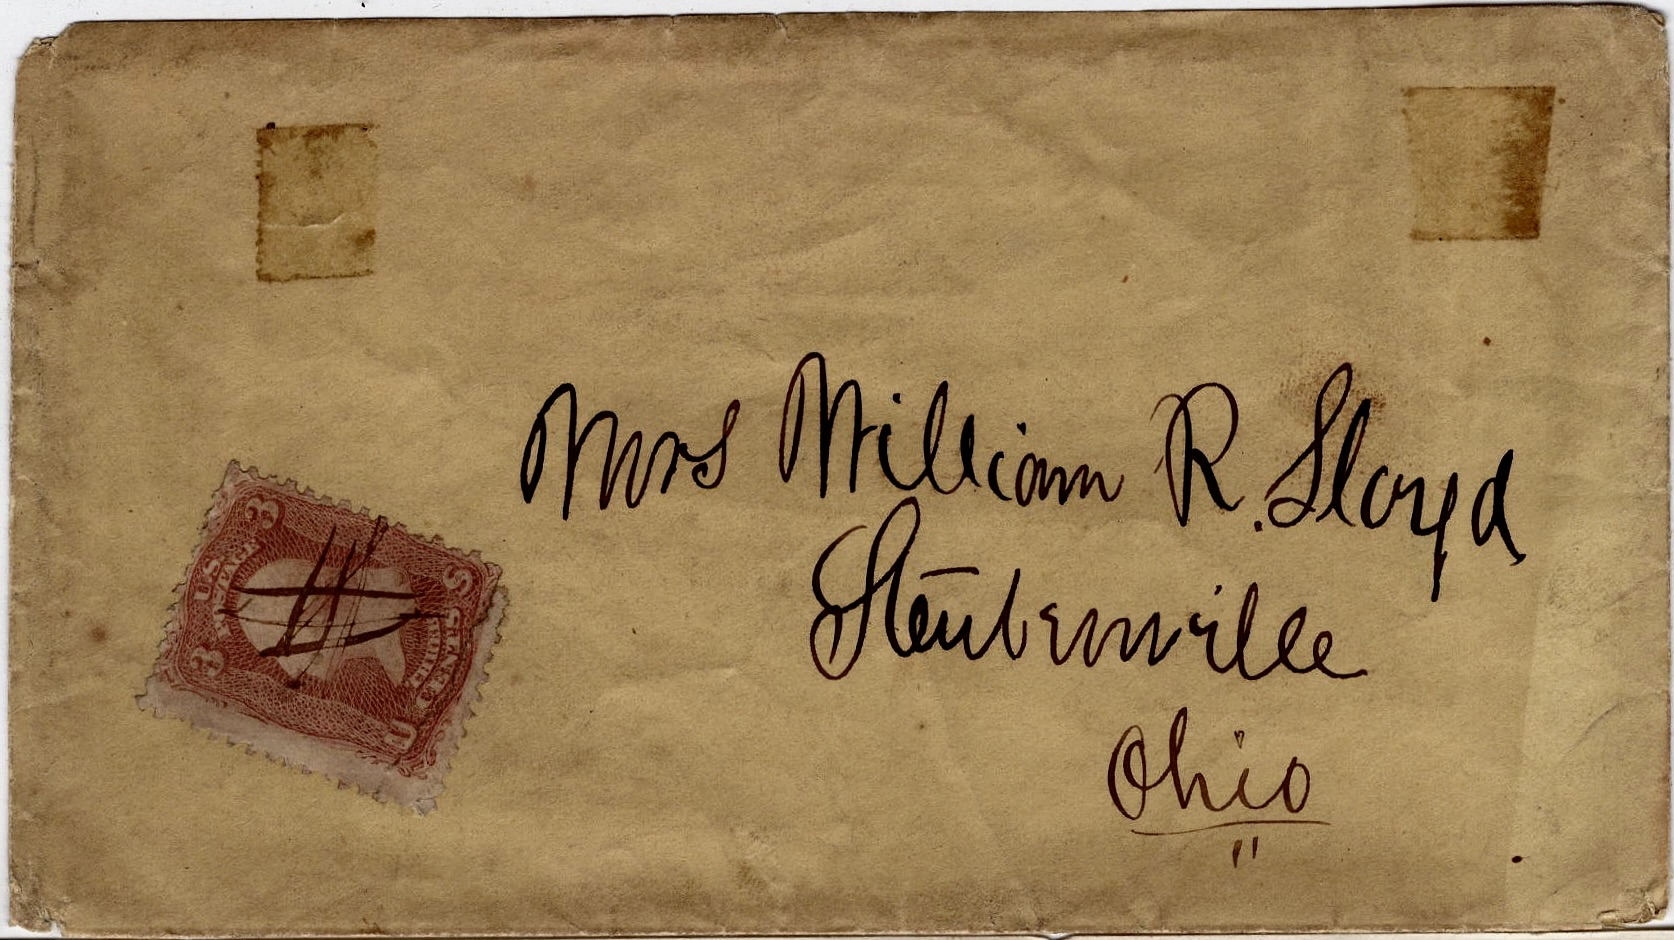 Mrs William R. Lloyd
Steubenville
Ohio
"
3 3
U.S.
POSTAGE
THREE
CENTS
U S